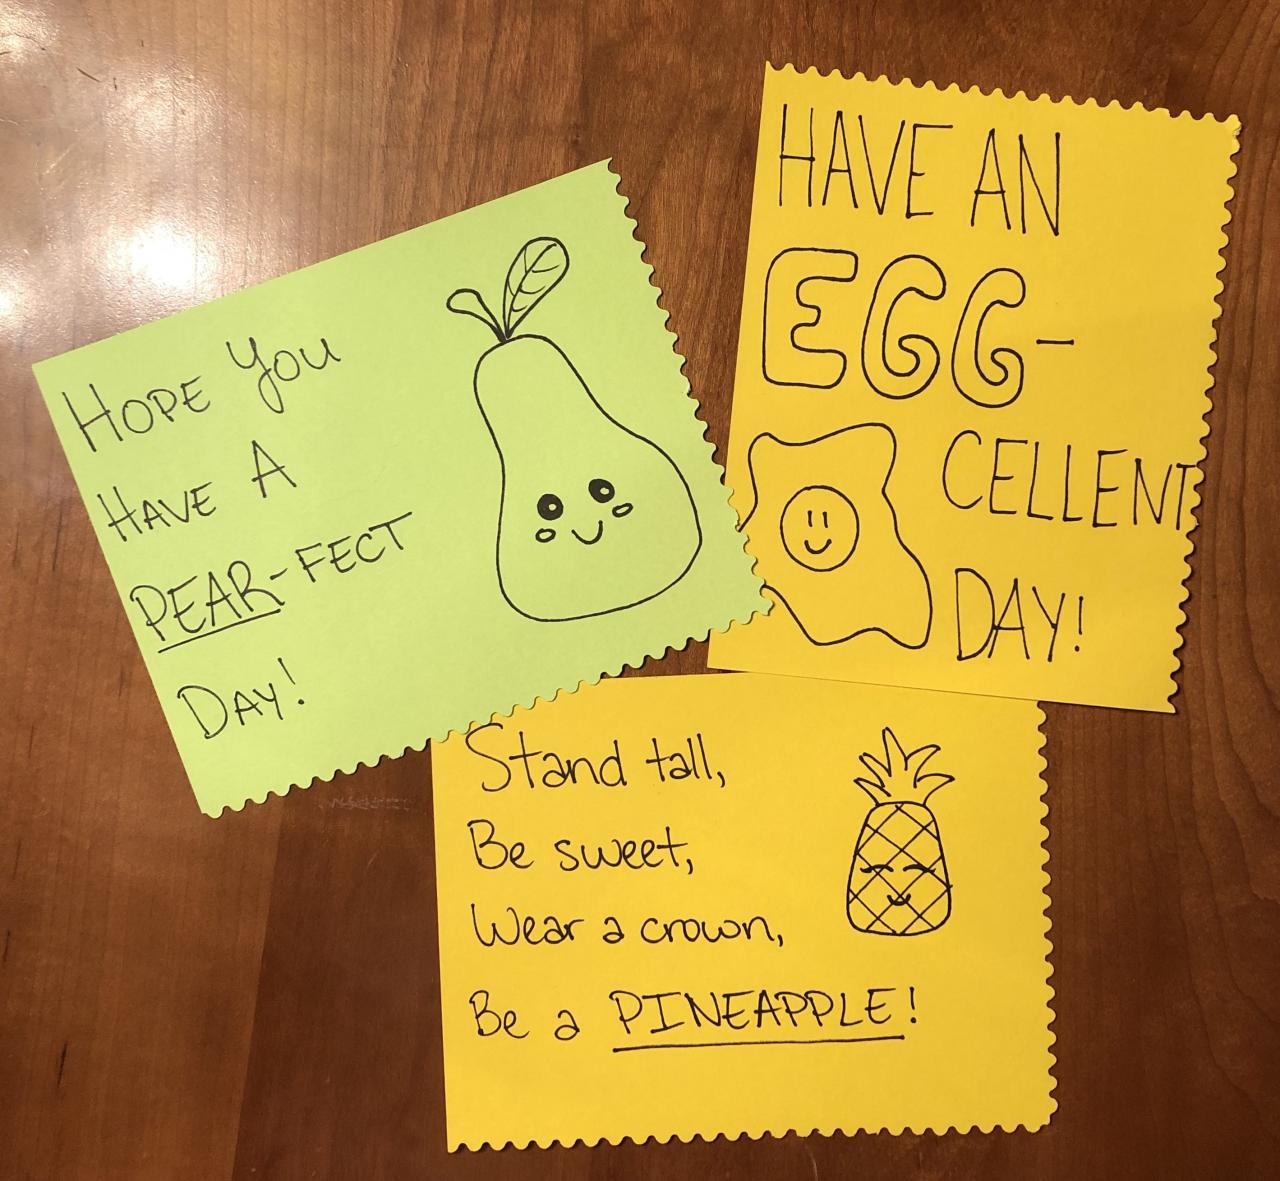 Hope You
Have A
PEAR-FECT
Day!
HAVE AN
EGG-
CELLENT
DAY!
Stand tall,
Be sweet,
Wear a crown,
Be a PINEAPPLE!